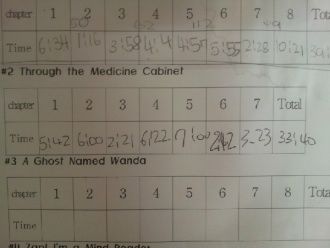 chapter 1 2 3 4 5 6 7 8 Tota
Time 6:34 1:16 3:58 4:4 4:57 5:55 2:28 0:21
#2 Through the Medicine Cabinet
chapter 1 2 3 4 5 6 7 Total
Time 5:42 6:00 2:21 6:22 7:00 3-23 33:40
#3 A Ghost Named Wanda
chapter 1 2 3 4 5 6 7 8 Tota
Time
#4 Zap! I'm a Mind Reader